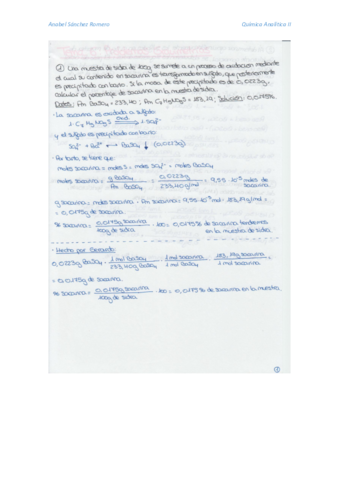 Anabel Sánchez Romero
Química Analítica II
① Una muestra de sidra de 100g se somete a un proceso de oxidación mediante
el cual su contenido en sacarina es transformado en sulfato, que posteriormente
es precipitado con bario. Si la masa de este precipitado es de 0,0223g,
calcular el porcentaje de sacarina en la muestra de sidra.
Datos: Pm BaSO4 = 233,40; Pm C7H5NO3S = 183,19. Solución: 0,0175%.
· La sacarina es oxidada a sulfato:
1 C7H5NO3S 1 SO4²⁻
y el sulfato es precipitado con bario:
SO4²⁻ + Ba²⁺ ↔ BaSO4 ↓ (0,0223g)
· Por tanto, se tiene que:
moles sacarina = moles S = moles SO4²⁻ = moles BaSO4
moles sacarina = g BaSO4 / Pm BaSO4 = 0,0223g / 233,40 g/mol = 9,55·10⁻⁵ moles de sacarina
g sacarina = moles sacarina · Pm sacarina = 9,55·10⁻⁵ mol · 183,19 g/mol =
= 0,0175g de sacarina
% sacarina = 0,0175g sacarina / 100g de sidra · 100 = 0,0175% de sacarina tendremos en la muestra de sidra
- Hecho por
0,0223g BaSO4 · 1 mol BaSO4 / 233,40g BaSO4 · 1 mol sacarina / 1 mol BaSO4 · 183,19g sacarina / 1 mol sacarina =
= 0,0175g de sacarina
% sacarina = 0,0175g sacarina / 100g de sidra · 100 = 0,0175% de sacarina en la muestra.
①